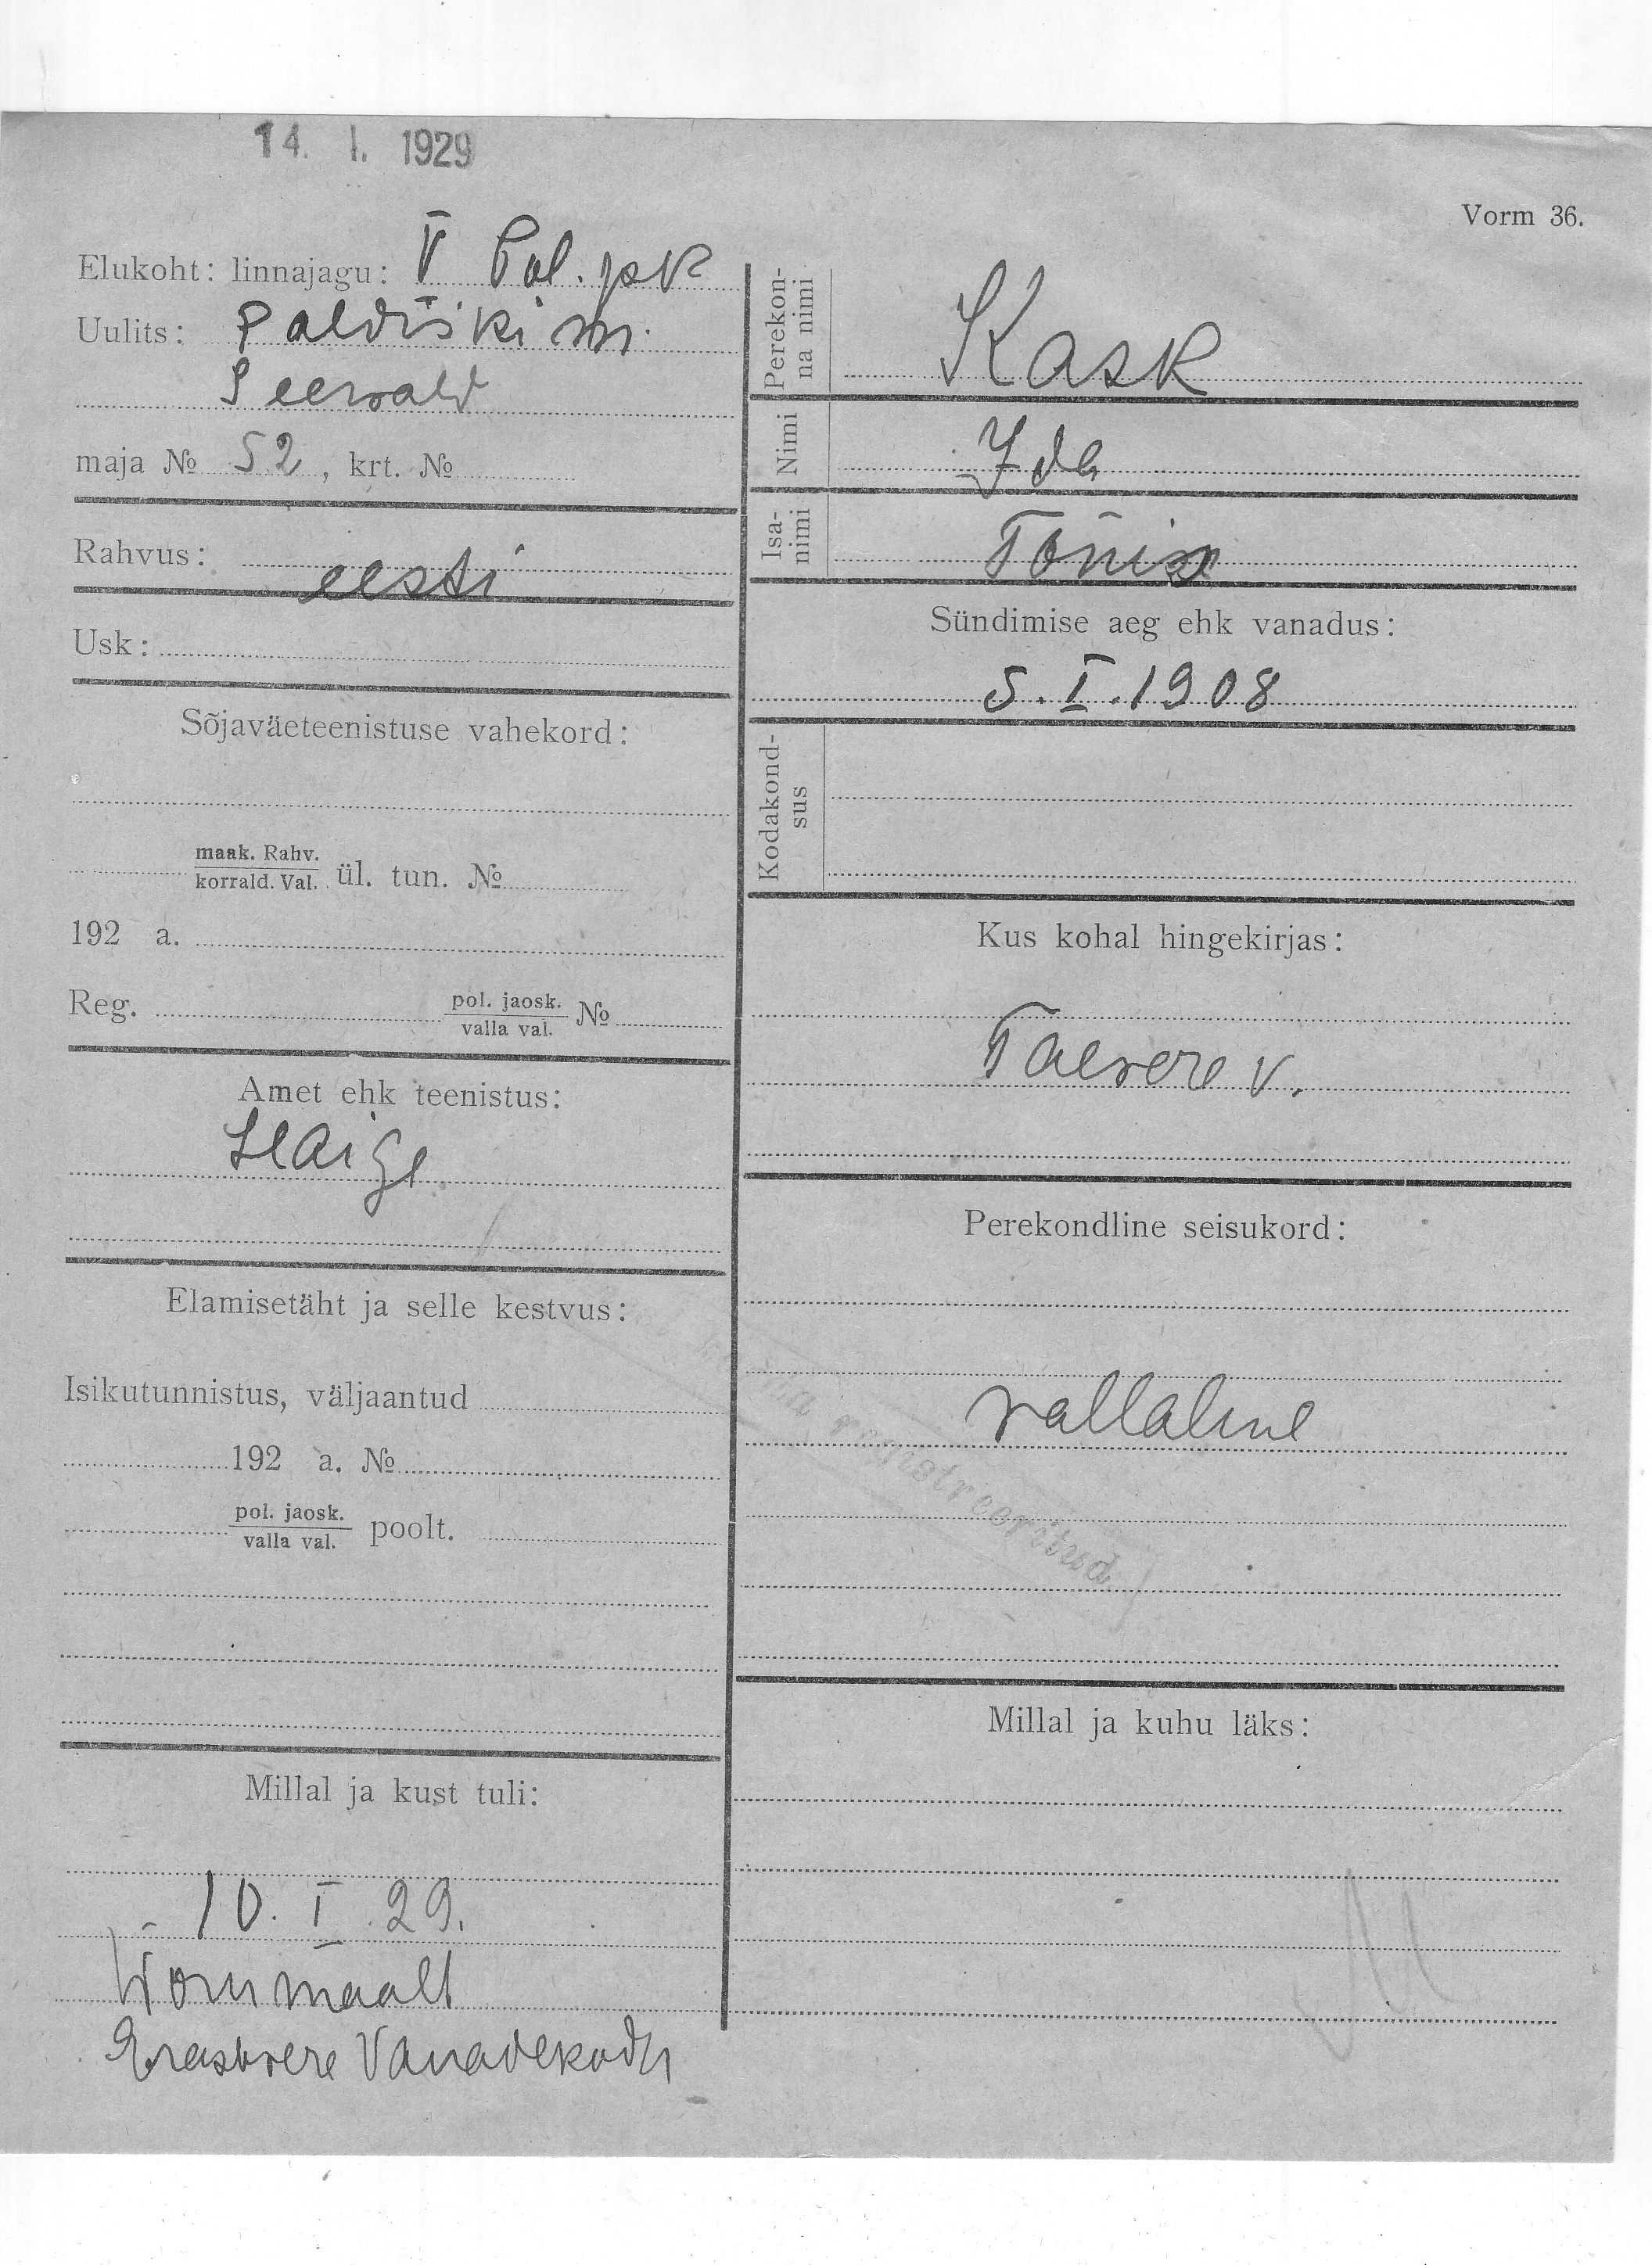 14. I. 1929
Vorm 36.
Elukoht: linnajagu: V Pol. jsk
Uulits: Paldiski m.
Seewald
maja № 52, krt. №
Rahvus: eesti
Usk:
Sõjaväeteenistuse vahekord:
maak. Rahv.
korrald. Val. ül. tun. №
192 a.
Reg. pol. jaosk.
valla val. №
Amet ehk teenistus:
Haige
Elamisetäht ja selle kestvus:
Isikutunnistus, väljaantud
192 a. №
pol. jaosk.
valla val. poolt.
Millal ja kust tuli:
10. I. 29.
Worumaalt
Erastvere Vanadekodu
Perekon-
na nimi
Kask
Nimi
Ida
Isa-
nimi
Tõnis
Sündimise aeg ehk vanadus:
5. I. 1908
Kodakond-
sus
Kus kohal hingekirjas:
Taevere v.
Perekondline seisukord:
vallaline
registreeritud
Millal ja kuhu läks: